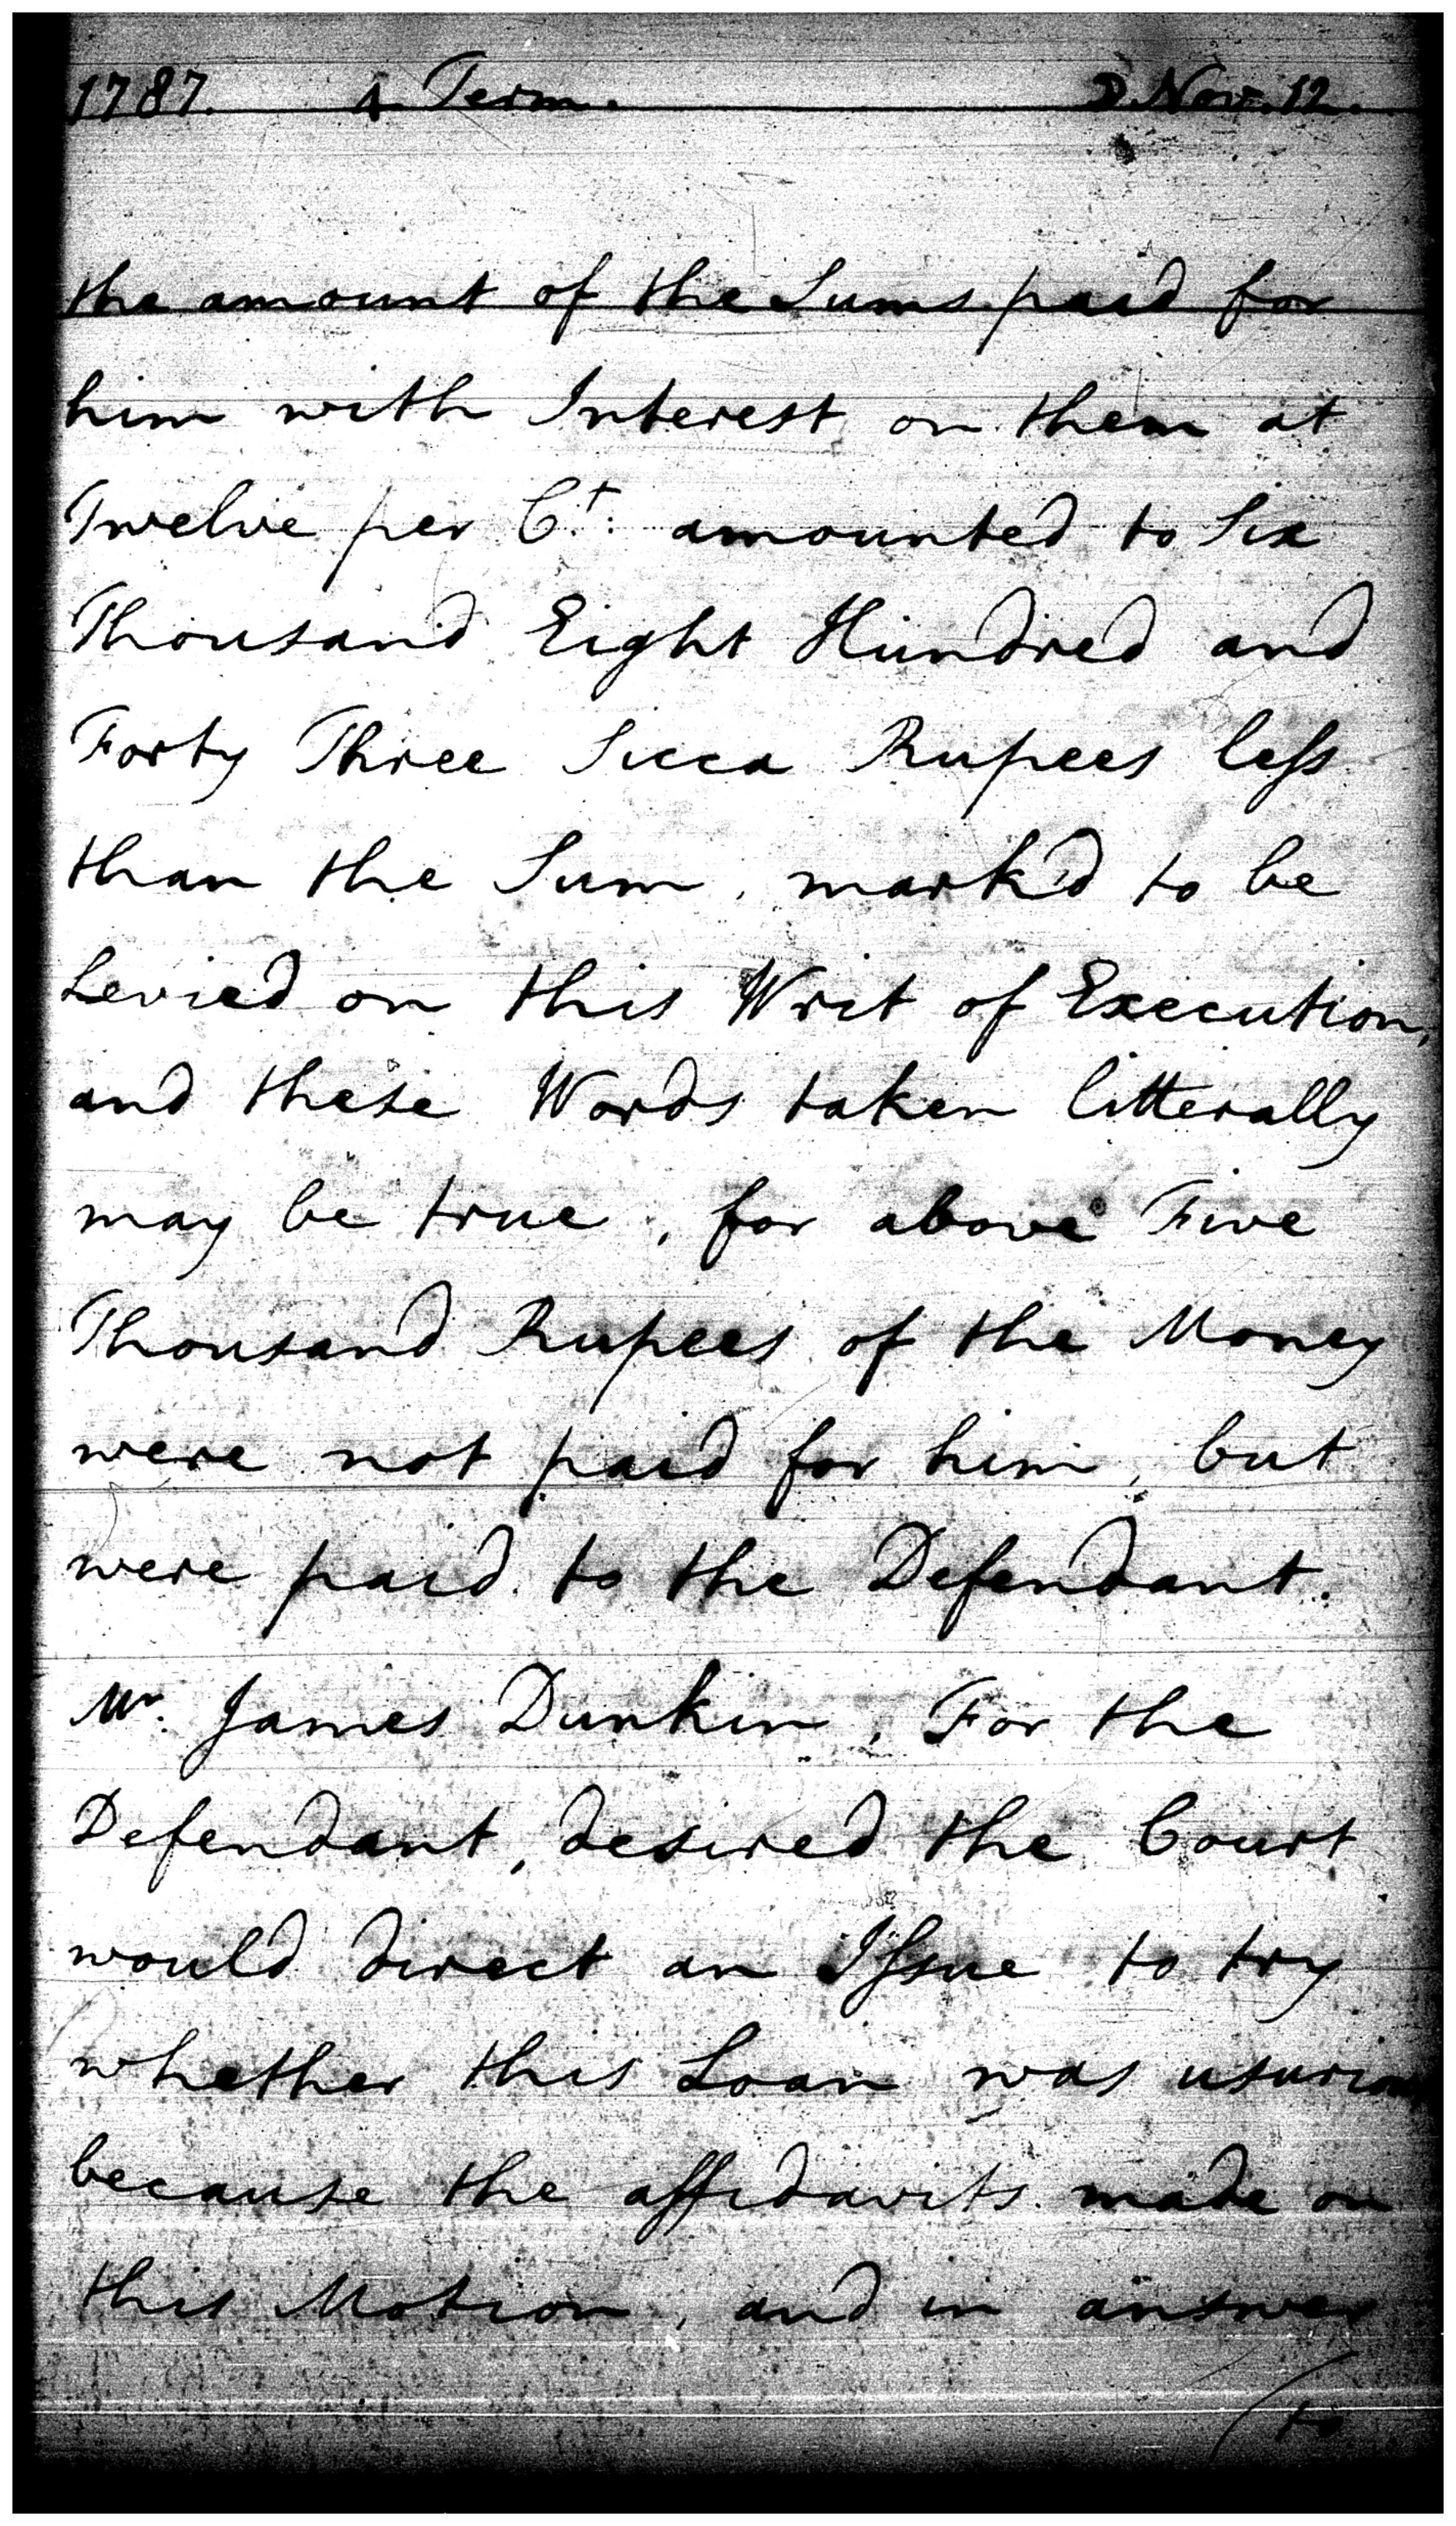 1787. 4 Term. D. Nov. 12.
the amount of the Sums paid for
him with Interest on them at
Twelve per Ct. amounted to Six
Thousand Eight Hundred and
Forty Three Sicca Rupees less
than the Sum, mark'd to be
Levied on this Writ of Execution,
and these Words taken litterally
may be true, for above Five
Thousand Rupees of the Money
were not paid for him, but
were paid to the Defendant.
Mr. James Dunkin, For the
Defendant, desired the Court
would direct an Issue to try
whether this Loan was usurious
because the affidavits made on
this Motion, and in answer
(to